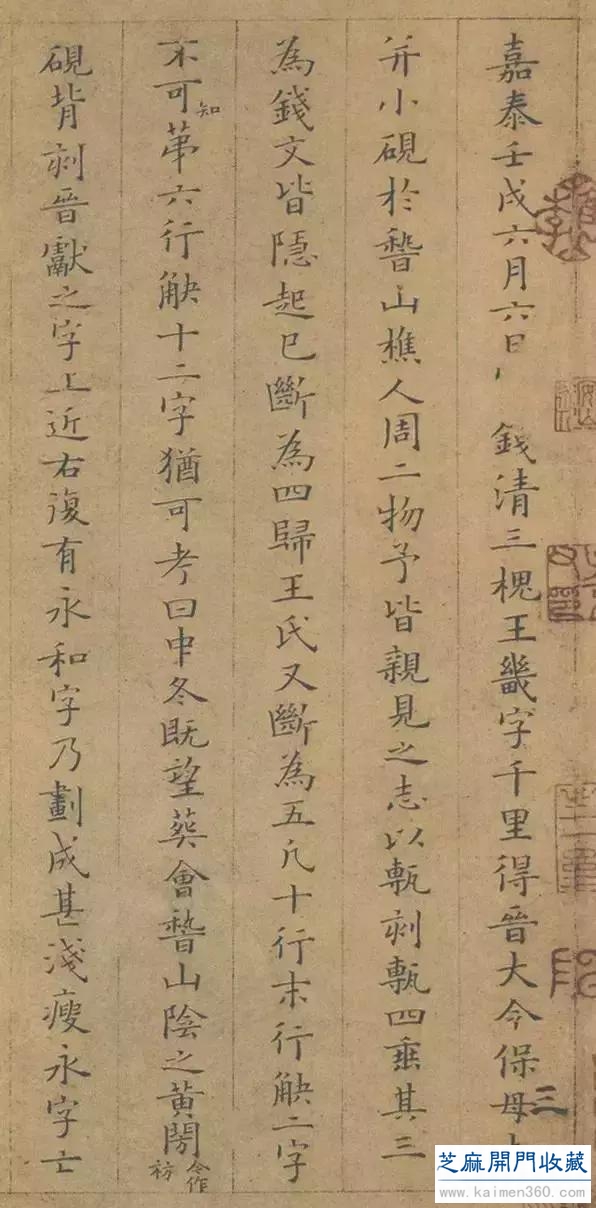 嘉泰壬戌六月六日錢清三槐王畿字千里得晉大令保母
并小硯於稽山樵人周二物予皆親見之志以甎刻甎四垂其三
為錢文皆隱起已斷為四歸王氏又斷為五凡十行末行缺二字
不可知第六行缺十二字猶可考曰中冬既望葬會稽山陰之黃閍今作祊
硯背刻晉獻之字上近右復有永和字乃劃成甚淺瘦永字亡
芝麻開門收藏
www.kaimen360.com